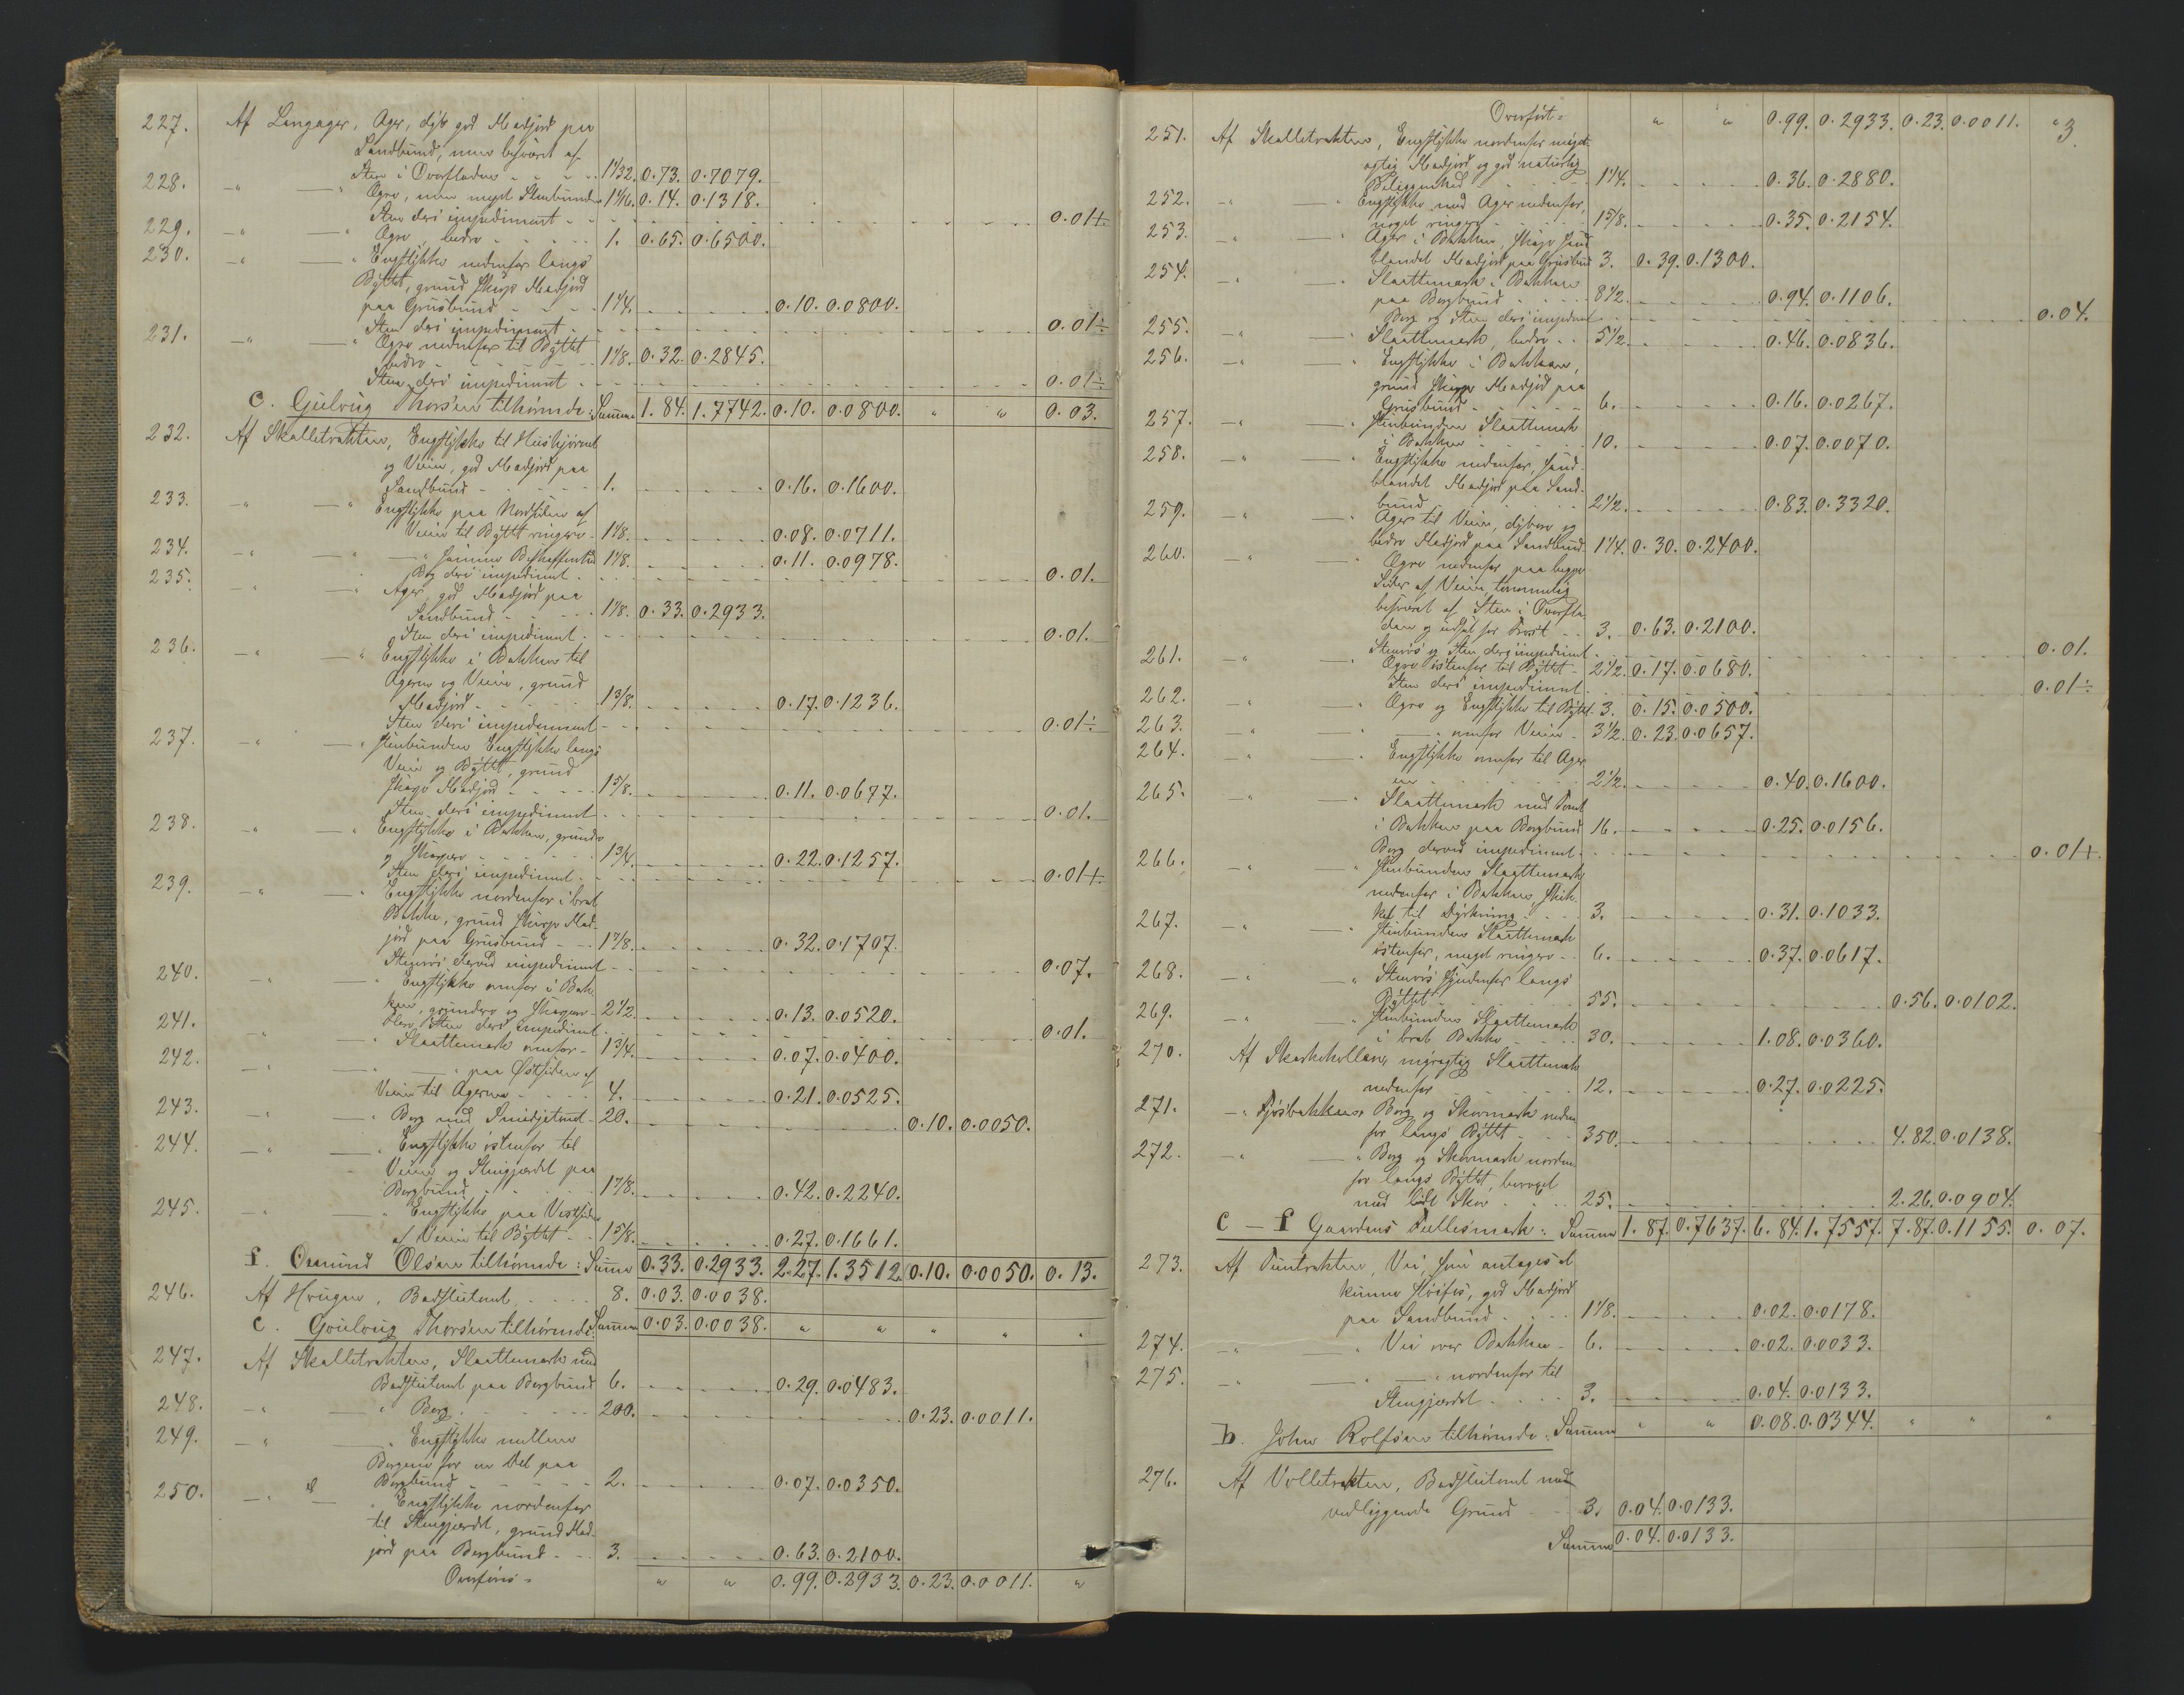 227. Af Langager, Ager, dyb god Madjord paa
Sandbund, men besværet af
Sten i Overfladen - - - 1 1/32. 0.73. 0.7079.
228. -"- —" Agre, men meget Stenbundne 1 1/16. 0.14. 0.1318.
Sten deri impediment - - - 0.01+
229. -"- —" Agre, bedre - - - 1. 0.65. 0.6500.
230. -"- —" Engstykke nedenfor langs
Byttet, grund skarp Madjord
paa Grusbund - - - 1 1/4. 0.10. 0.0800.
Sten deri impediment - - - 0.01÷
231. -"- —" Agre nedenfor til Byttet
bedre - - - 1 1/8. 0.32. 0.2845.
Sten deri impediment - - - 0.01÷
c. Gulvug Thorsen tilhørende: Summa 1.84. 1.7742. 0.10. 0.0800. " " 0.03.
232. Af Skalletrakten, Engstykke til Huskjørnet
og Veien, god Madjord paa
Sandbund - - - 1. 0.16. 0.1600.
233. -"- —" Engstykke paa Nordsiden af
Veien til Byttet ringere - 1 1/8. 0.08. 0.0711.
234. -"- —" —" samme Beskaffenhed 1 1/8. 0.11. 0.0978.
Berg deri impediment - - - 0.01.
235. " —" Ager, god Madjord paa
Sandbund - - - 1 1/8. 0.33. 0.2933.
Sten deri impediment - - - 0.01.
236. -"- —" Engstykke i Bakken til
Ageren og Veien, grund
Madjord - - - 1 3/8. 0.17. 0.1236.
Sten deri impediment - - - 0.01÷
237. -"- —" Stenbunden Engstykke langs
Veien og Byttet, grund
skarp Madjord - - - 1 5/8. 0.11. 0.0677.
Sten deri impediment - - - 0.01.
238. -"- —" Engstykke i Bakken, grundere
skarpere - - - 1 3/4. 0.22. 0.1257.
Sten deri impediment - - - 0.01+.
239. -"- —" Engstykke nordenfor i brat
Bakke, grund skarp Mad-
jord paa Grusbund - - 1 7/8. 0.32. 0.1707.
Stenrøs derved impediment - - 0.07.
240. -"- —" Engstykke ovenfor i Bak-
ken, grundere og skarpere - 2 1/2. 0.13. 0.0520.
Sten deri impediment - - - 0.01.
241. -"- " Slaattemark ovenfor - 1 3/4. 0.07. 0.0400.
242. -"- —" —" paa Østsiden af
Veien til Ageren - - - 4. 0.21. 0.0525.
243. -"- —" Berg med Smidjetomt - 20. 0.10. 0.0050.
244. -"- —" Engstykke østenfor til
Veien og Stengjærdet paa
Bergbund - - - 1 7/8. 0.42. 0.2240.
245. -"- —" Engstykke paa Vestsiden
af Veien til Byttet - - 1 5/8. 0.27. 0.1661.
f. Osmund Olsen tilhørende: Summa 0.33. 0.2933. 2.27. 1.3512. 0.10. 0.0050. 0.13.
246. Af Haugen, Badstutomt - - - 8. 0.03. 0.0038.
c. Goulvug Thorsen tilhørende: Summa 0.03. 0.0038. " " " " "
247. Af Skalletrakten, Slaattemark med
Badstutomt paa Bergbund 6. 0.29. 0.0483.
248. -"- —" Berg - - - 200. 0.23. 0.0011.
249. -"- —" Engstykke mellem
Bergene for en Del paa
Bergbund - - - 2. 0.07. 0.0350.
250. -"- —" Engstykke nordenfor
til Stengjærdet, grund Mad-
jord paa Bergbund - - 3. 0.63. 0.2100.
Overføres = " " 0.99. 0.2933. 0.23. 0.0011. "
Overført = " " 0.99. 0.2933. 0.23. 0.0011. "3
251. Af Skalletrakten, Engstykke nordenfor
agtig Madjord og god naturlig
Beliggenhed 1 1/4. 0.36. 0.2880.
252. -"- —" Engstykke med Ager nedenfor,
noget ringere - - 1 5/8. 0.35. 0.2154.
253. -"- —" Ager i Bakken, skarp sand-
blandet Madjord paa Grusbund 3. 0.39. 0.1300.
254. -"- —" Slaattemark i Bakken
paa Bergbund - - - 8 1/2. 0.94. 0.1106.
Berg og Sten deri impediment - - 0.04.
255. -"- —" Slaattemark, bedre - - 5 1/2. 0.46. 0.0836.
256. -"- —" Engstykke i Bakken,
grund skarp Madjord paa
Grusbund - - - 6. 0.16. 0.0267.
257. -"- —" Stenbunden Slaattemark
i Bakken - - - 10. 0.07. 0.0070.
258. -"- —" Engstykke nedenfor, sand-
blandet Madjord paa Sand-
bund - - - 2 1/2. 0.83. 0.3320.
259. -"- —" Ager til Veien, dybere og
bedre Madjord paa Sandbund 1 1/4. 0.30. 0.2400.
260. " —" Agre nedenfor paa begge
Sider af Veien, temmelig
besværet af Sten i Overfla-
den og udsat for Frost - - 3. 0.63. 0.2100.
Stenrøs og Sten deri impediment - 0.01.
261. -"- —" Agre østenfor til Byttet - 2 1/2. 0.17. 0.0680.
Sten deri impediment - - 0.01÷
262. " —" Agre og Engstykke til Byttet 3. 0.15. 0.0500.
263. " —" —" ovenfor Veien - 3 1/2. 0.23. 0.0657.
264. " —" Engstykke ovenfor til Ager-
en - - - 2 1/2. 0.40. 0.1600.
265. " —" Slaattemark med Tomt
i Bakken paa Bergbund 16. 0.25. 0.0156.
Berg derved impediment - - 0.01+.
266. " —" Stenbunden Slaattemark
nedenfor i Bakken, skik-
ket til Dyrkning - - - 3. 0.31. 0.1033.
267. " —" Stenbunden Slaattemark
østenfor, meget ringere - - 6. 0.37. 0.0617.
268. " —" Stenrøs søndenfor langs
Byttet - - - 55. 0.56. 0.0102.
269. -"- —" Stenbunden Slaattemark
i brat Bakke - - - 30. 1.08. 0.0360.
270. Af myragtig Slaattemark
nedenfor - - - 12. 0.27. 0.0225.
271. -" Fjøsbakken, Berg og Skovmark neden-
for langs Byttet - - - 350. 4.82. 0.0138.
272. -"- —" Berg og Skovmark norden-
for langs Byttet, bevoxet
med lidt Skov - - - 25. 2.26. 0.0904.
c – f Gaardens Fællesmark: Summa 1.87. 0.7637. 6.84. 1.7557. 7.87. 0.1155. 0.07.
273. Af Tuntrakten, Vei, som antages at
kunne god Madjord
paa Sandbund - - - 1 1/8. 0.02. 0.0178.
274. -"- —" Vei over Bakken - 6. 0.02. 0.0033.
275. -"- —" —" nordenfor til
Stengjærdet - - - 3. 0.04. 0.0133.
b. John Rolfsen tilhørende: Summa " " 0.08. 0.0344. " " "
276. Af Volletrakten, Badstutomt med
vedliggende Grund - - 3. 0.04. 0.0133.
Summa 0.04. 0.0133.